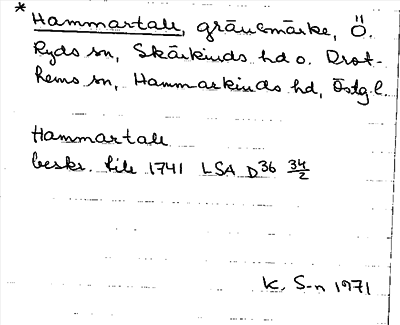 * Hammartall, gränsmärke, Ö.
Ryds sn, Skärkinds hd o. Drot-
hems sn, Hammarkinds hd, Östg.l.
Hammartall
beskr. till 1741 LSA D36 34/2
K. S-n 1971